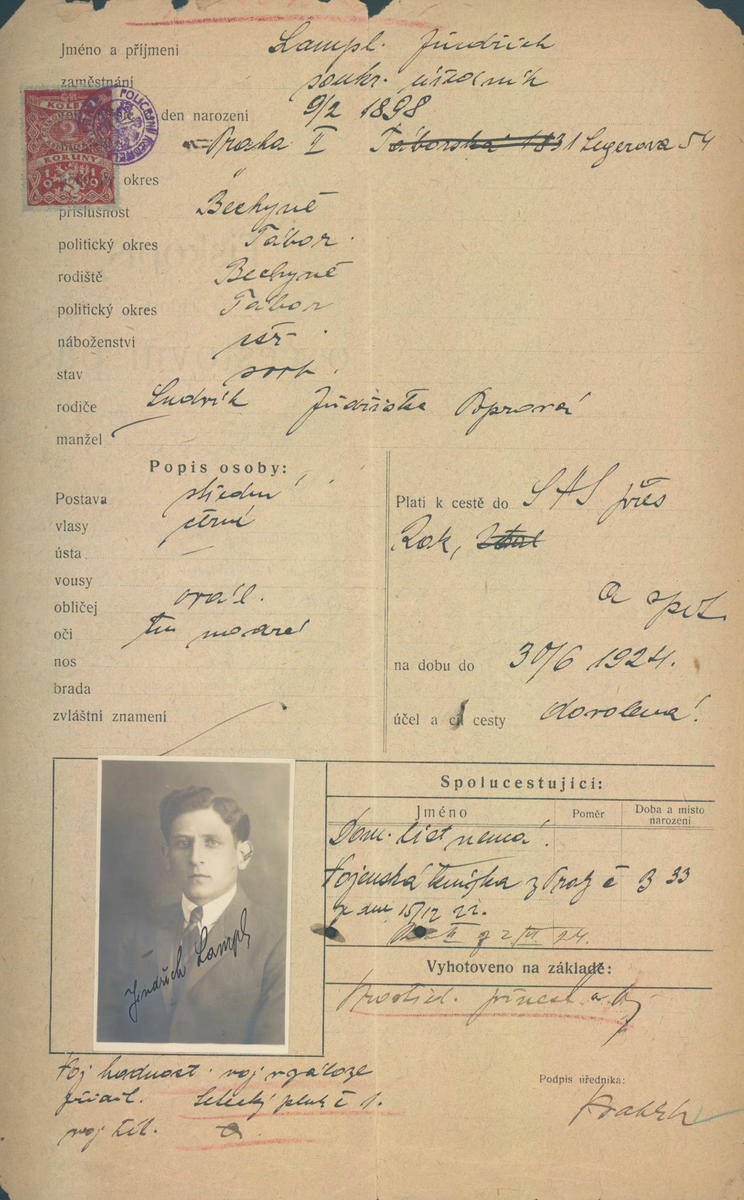 Jméno a příjmení Lampl. Jindřich
zaměstnání soukr. úředník
KOLEK 2 den narození 9/2 1898
KORUNY Praha II Táborská 1831 Legerova 54
okres "
příslušnost Bechyně
politický okres Tábor.
rodiště Bechyně
politický okres Tábor
náboženství
stav
rodiče Ludvík Jindřiška
manžel
Popis osoby:
Postava střední
vlasy černé
ústa —
vousy
obličej ovál.
oči tm modré
nos
brada
zvláštní znamení
Platí k cestě do SHS přes
Rak,
a zpět
na dobu do 30/6 1924.
účel a cíl cesty dovolená!
Jindřich Lampl
Spolucestující:
Jméno Poměr Doba a místo narození
Dom. list nemá.
Vojenská knížka z Prahy č 333
ze dne 15/12 22.
Vyhotoveno na základě:
Voj hodnost. voj v záloze
přísl. Letecký pluk č 1.
voj
Podpis úředníka: